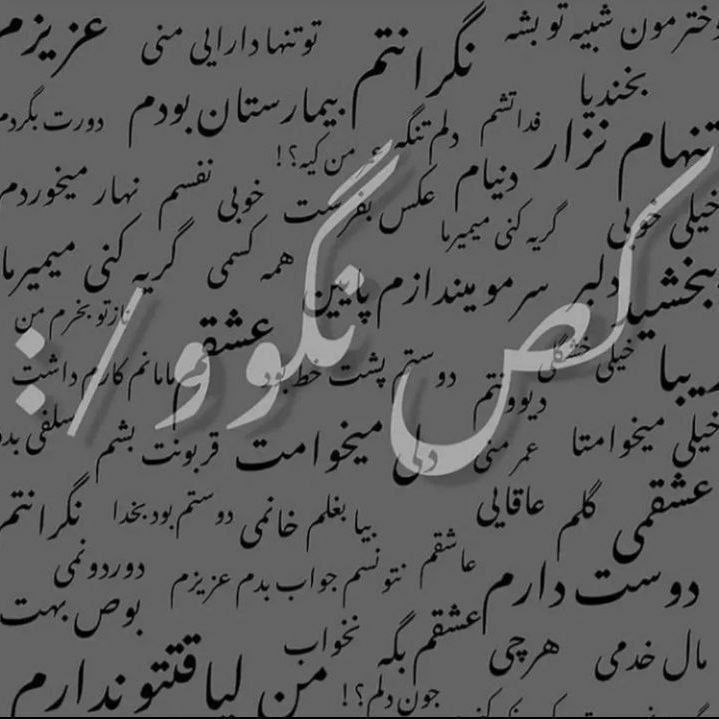 دخترمون شبیه تو بشه
تو تنها دارایی منی
عزیزم
نگرانتم
بخندیا
بیمارستان بودم
دورت بگردم
فداتشم
دلم تنگه
من کیه؟!
تنهام نزار
دنیام
عکس بفرست
خوبی نفسم
نهار میخوردم
خیلی خوبی
گریه کنی میمیرما
همه کسمی
گریه کنی میمیرما
ببخشید
دلبر
سرمو میندازم پایین
نازتو بخرم من
عشقم
کص نگوو /:
زیبا
خیلی خشگلی
دیوونتم
دوستم پشت خط بود
مامانم کارم داشت
خیلی میخوامتا
عمر منی
دلی
میخوامت
قربونت بشم
سلفی بده
عشقمی
گلم
عاقایی
بیا بغلم خانمی
دوستم بود بخدا
نگرانتم
دوست دارم
عاشقم
نتونسم جواب بدم عزیزم
دوردونمی
بوص بهت
مال خدمی
هرچی
عشقم بگه
نخواب
جون دلم؟!
من لیاقتتو ندارم